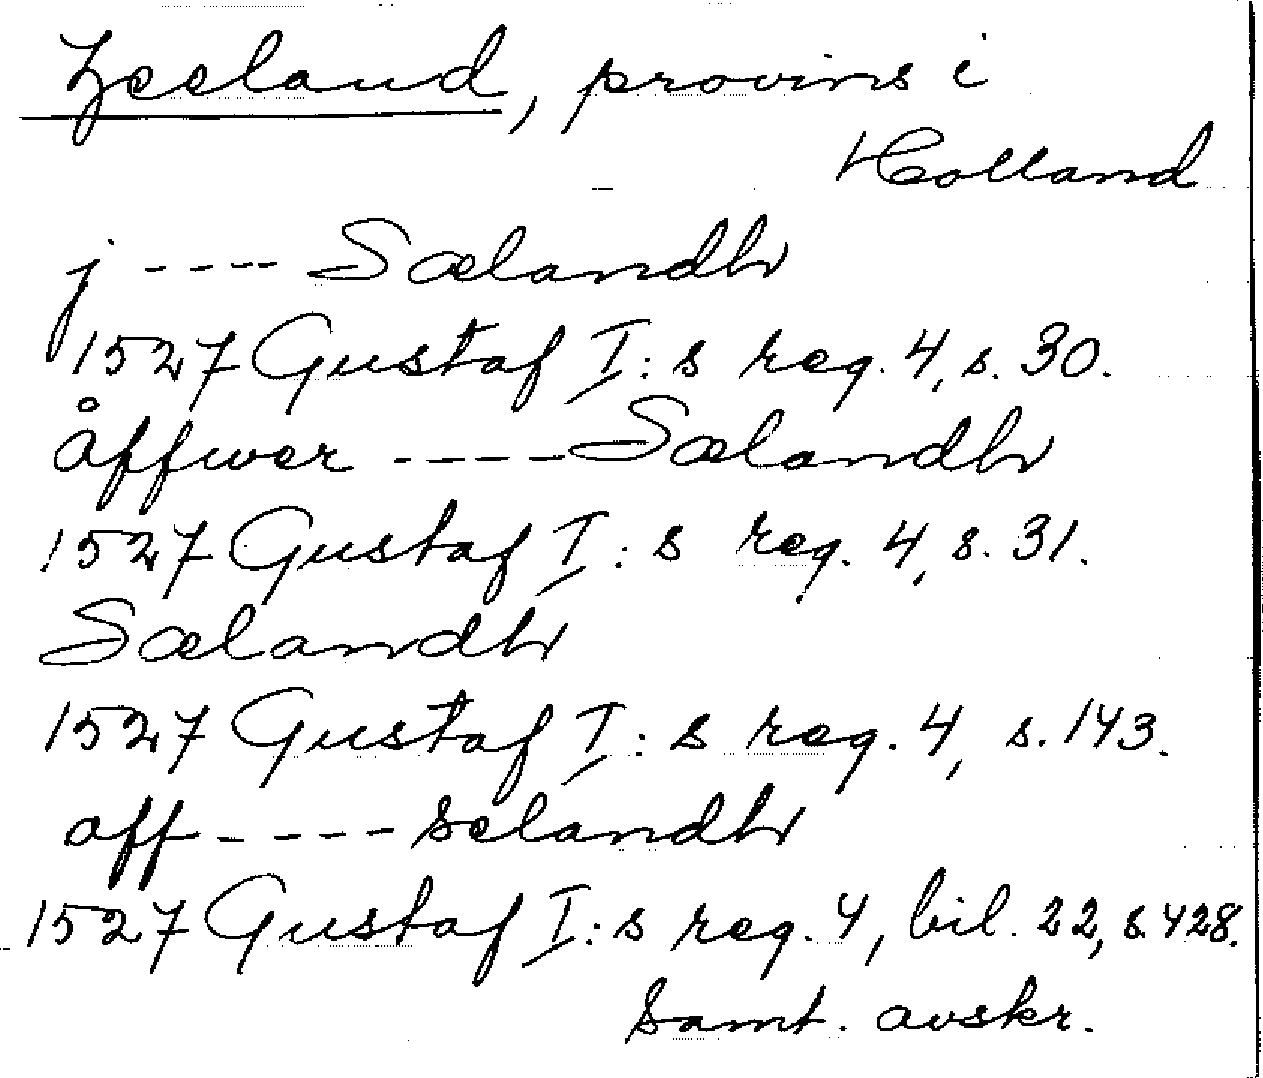 Zeeland, provins i
Holland
j ---- Sælandh
1527 Gustaf I:s reg. 4, s. 30.
åffwer ---- Sælandh
1527 Gustaf I:s reg. 4, s. 31.
Sælandh
1527 Gustaf I:s reg. 4, s. 143.
aff ---- Selandh
1527 Gustaf I:s reg. 4, bil. 22, s. 428.
Samt. avskr.